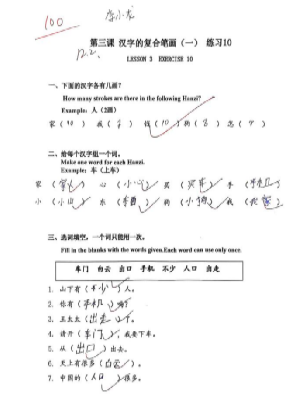 100
李小龙
12.2.
第三课 汉字的复合笔画（一） 练习10
LESSON 3 EXERCISE 10
一、下面的汉字各有几画？
How many strokes are there in the following Hanzi?
Example: 人（2画）
家（10） 我（7） 钱（10） 狗（8） 怎（9）
二、给每个汉字组一个词。
Make one word for each Hanzi.
Example: 车（上车）
家（家人） 心（小心） 买（买车） 手（手机）
小（小山） 水（） 狗（小狗） 我（我家）
三、选词填空，一个词只能用一次。
Fill in the blanks with the words given.Each word can use only once.
车门 白云 出口 手机 不少 人口 出走
1. 山下有（不少）人。
2. 你有（手机）吗？
3. 王太太（出走）了。
4. 请开（车门），我要下车。
5. 从（出口）出去。
6. 天上有很多（白云）。
7. 中国的（人口）很多。